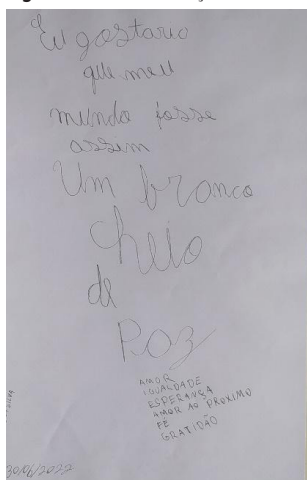 Eu gostario
que meu
mundo fosse
assim
Um branco
cheio
de
Poz
AMOR
IGUALDADE
ESPERANÇA
AMOR AO PROXIMO
FÉ
GRATIDÃO
30/06/2022